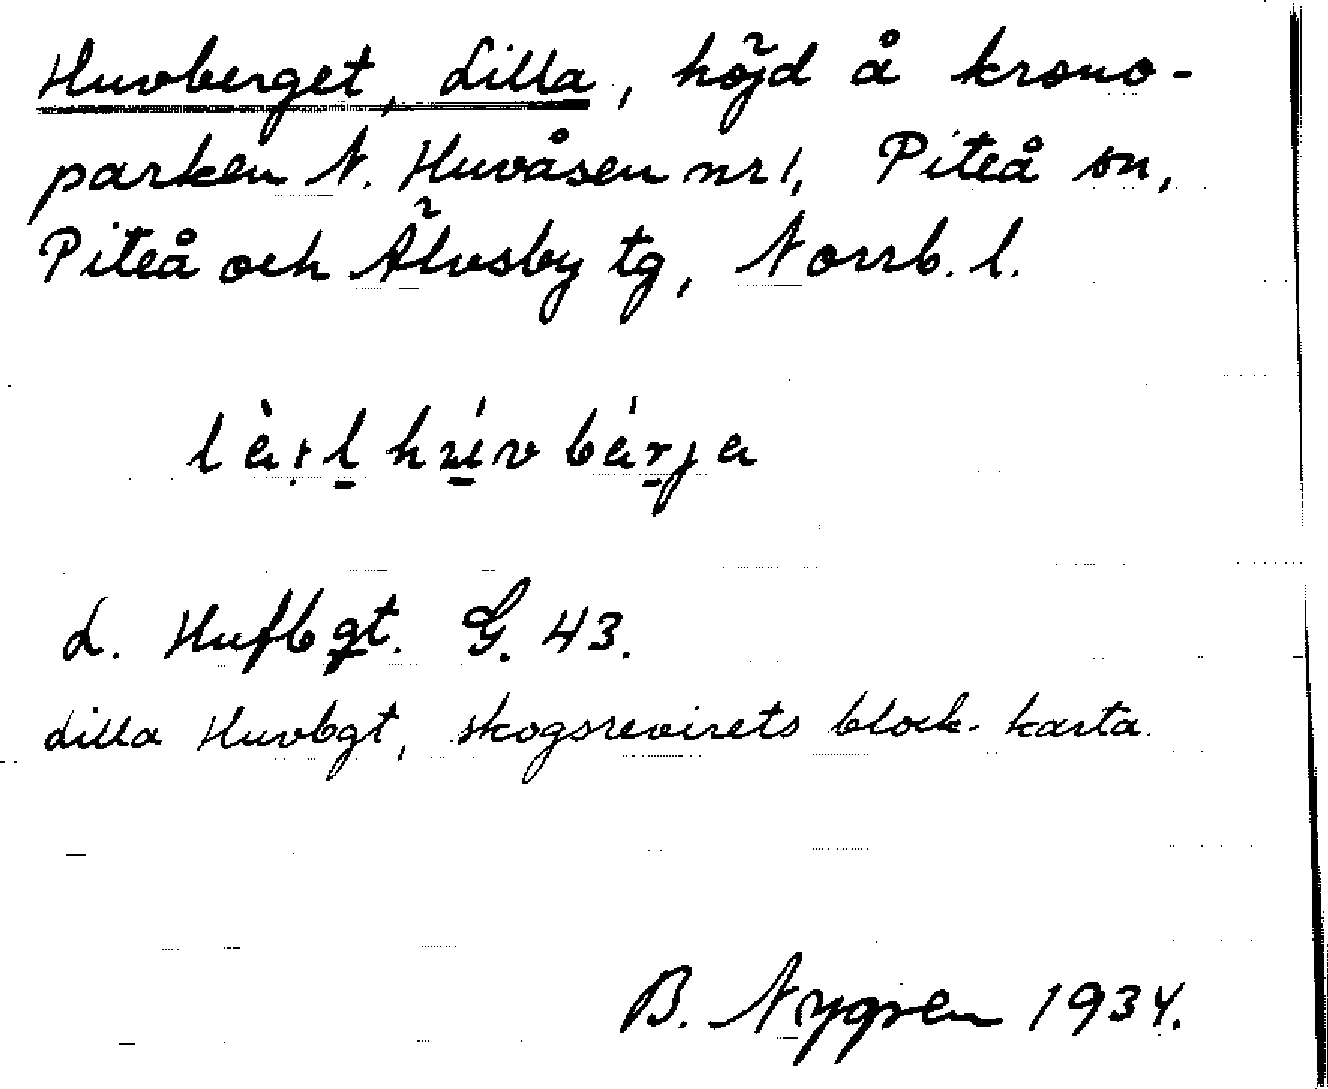 Huvberget, Lilla, höjd å krono-
parken N. Huvåsen nr 1, Piteå sn,
Piteå och Älvsby tg, Norrb. l.
L. Hufbgt. G. 43.
Lilla Huvbgt, skogsrevirets block-karta.
B. Nygren 1934.